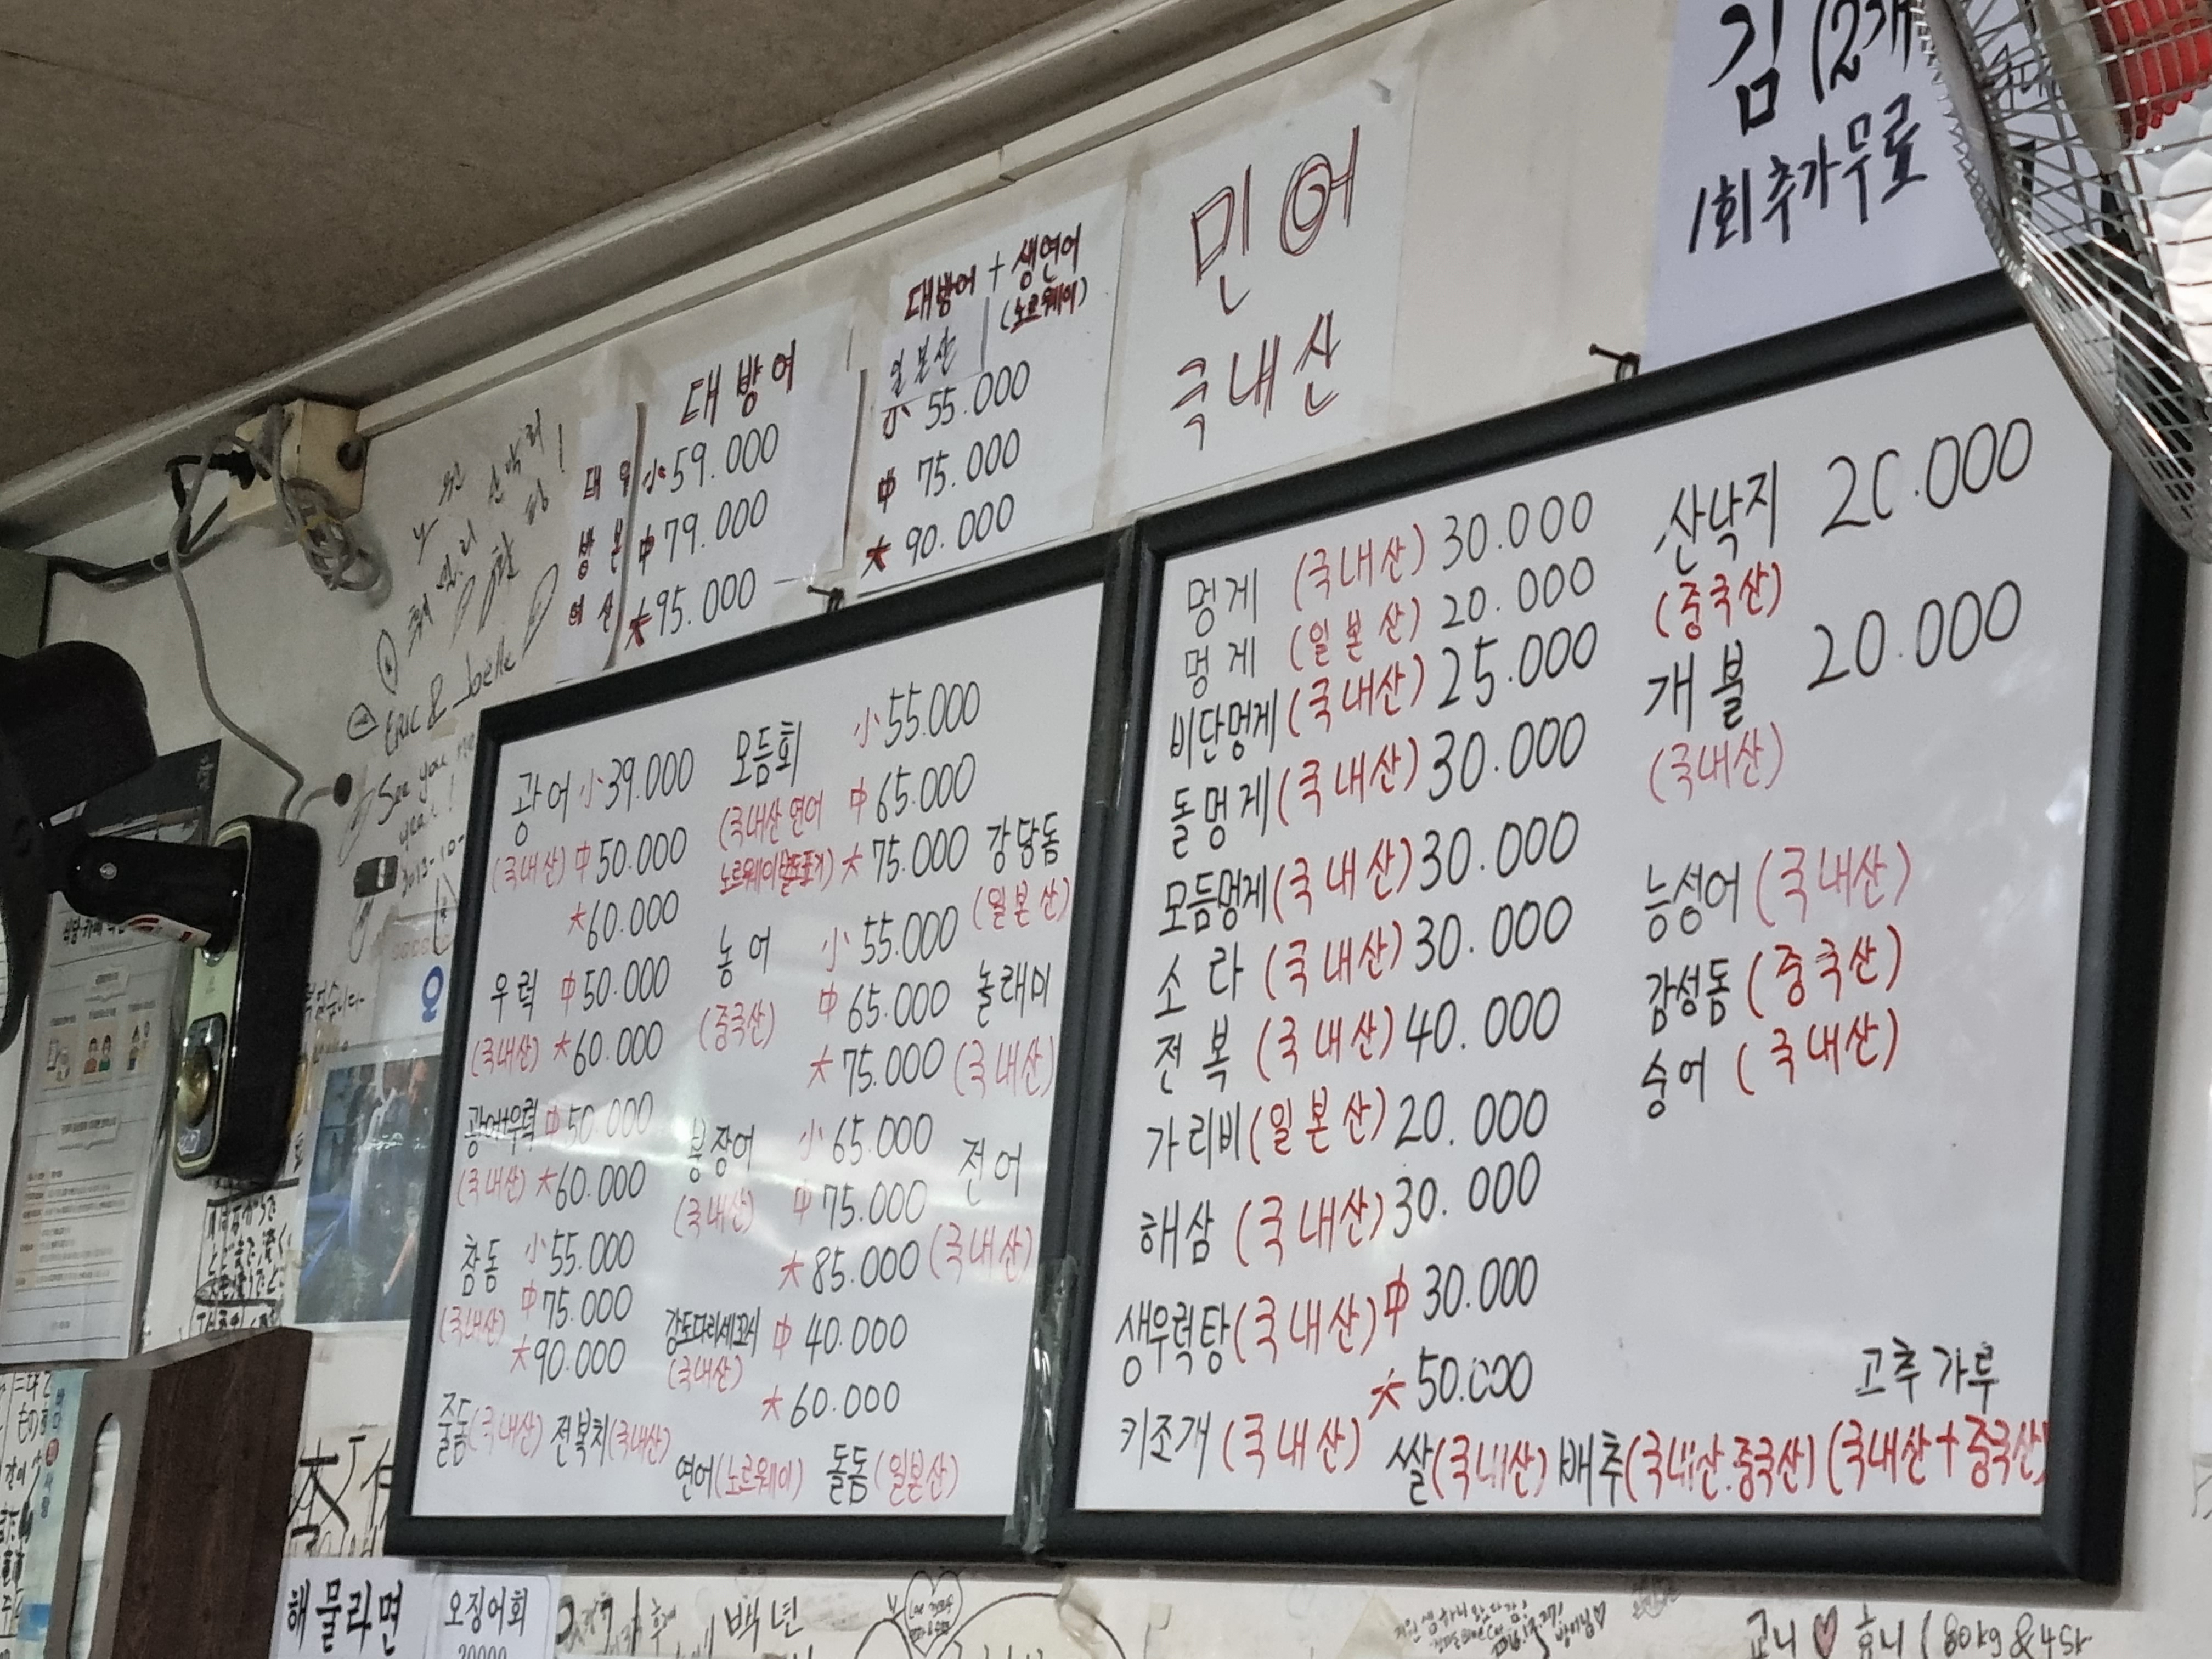 김 (2개
1회 추가 무료
민어
국내산
대방어 + 생연어
일본산 (노르웨이)
小 55.000
中 75.000
大 90.000
대방어
대방어 일본산
小 59.000
中 79.000
大 95.000
Eric & Joëlle
See you
광어 小 39.000
(국내산) 中 50.000
大 60.000
우럭 中 50.000
(국내산) 大 60.000
광어+우럭 中 50.000
(국내산) 大 60.000
참돔 小 55.000
中 75.000
(국내산)
大 90.000
줄돔(국내산) 전복치(국내산)
모듬회 小 55.000
(국내산 연어 中 65.000
노르웨이 大 75.000
농어 小 55.000
(중국산) 中 65.000
大 75.000
붕장어 小 65.000
(국내산) 中 75.000
大 85.000
감도다리세꼬시 中 40.000
(국내산)
大 60.000
연어(노르웨이) 돌돔(일본산)
강담돔
(일본산)
놀래미
(국내산)
전어
(국내산)
멍게 (국내산) 30.000
멍게 (일본산) 20.000
비단멍게 (국내산) 25.000
돌멍게 (국내산) 30.000
모듬멍게 (국내산) 30.000
소라 (국내산) 30.000
전복 (국내산) 40.000
가리비 (일본산) 20.000
해삼 (국내산) 30.000
생우럭탕 (국내산) 中 30.000
大 50.000
키조개 (국내산)
산낙지 20.000
(중국산)
개불 20.000
(국내산)
능성어 (국내산)
감성돔 (중국산)
숭어 (국내산)
고추가루
쌀(국내산) 배추(국내산.중국산) (국내산+중국산)
해물라면
오징어회
20000
백년
교니 ♡ 효니 (80kg & 45k